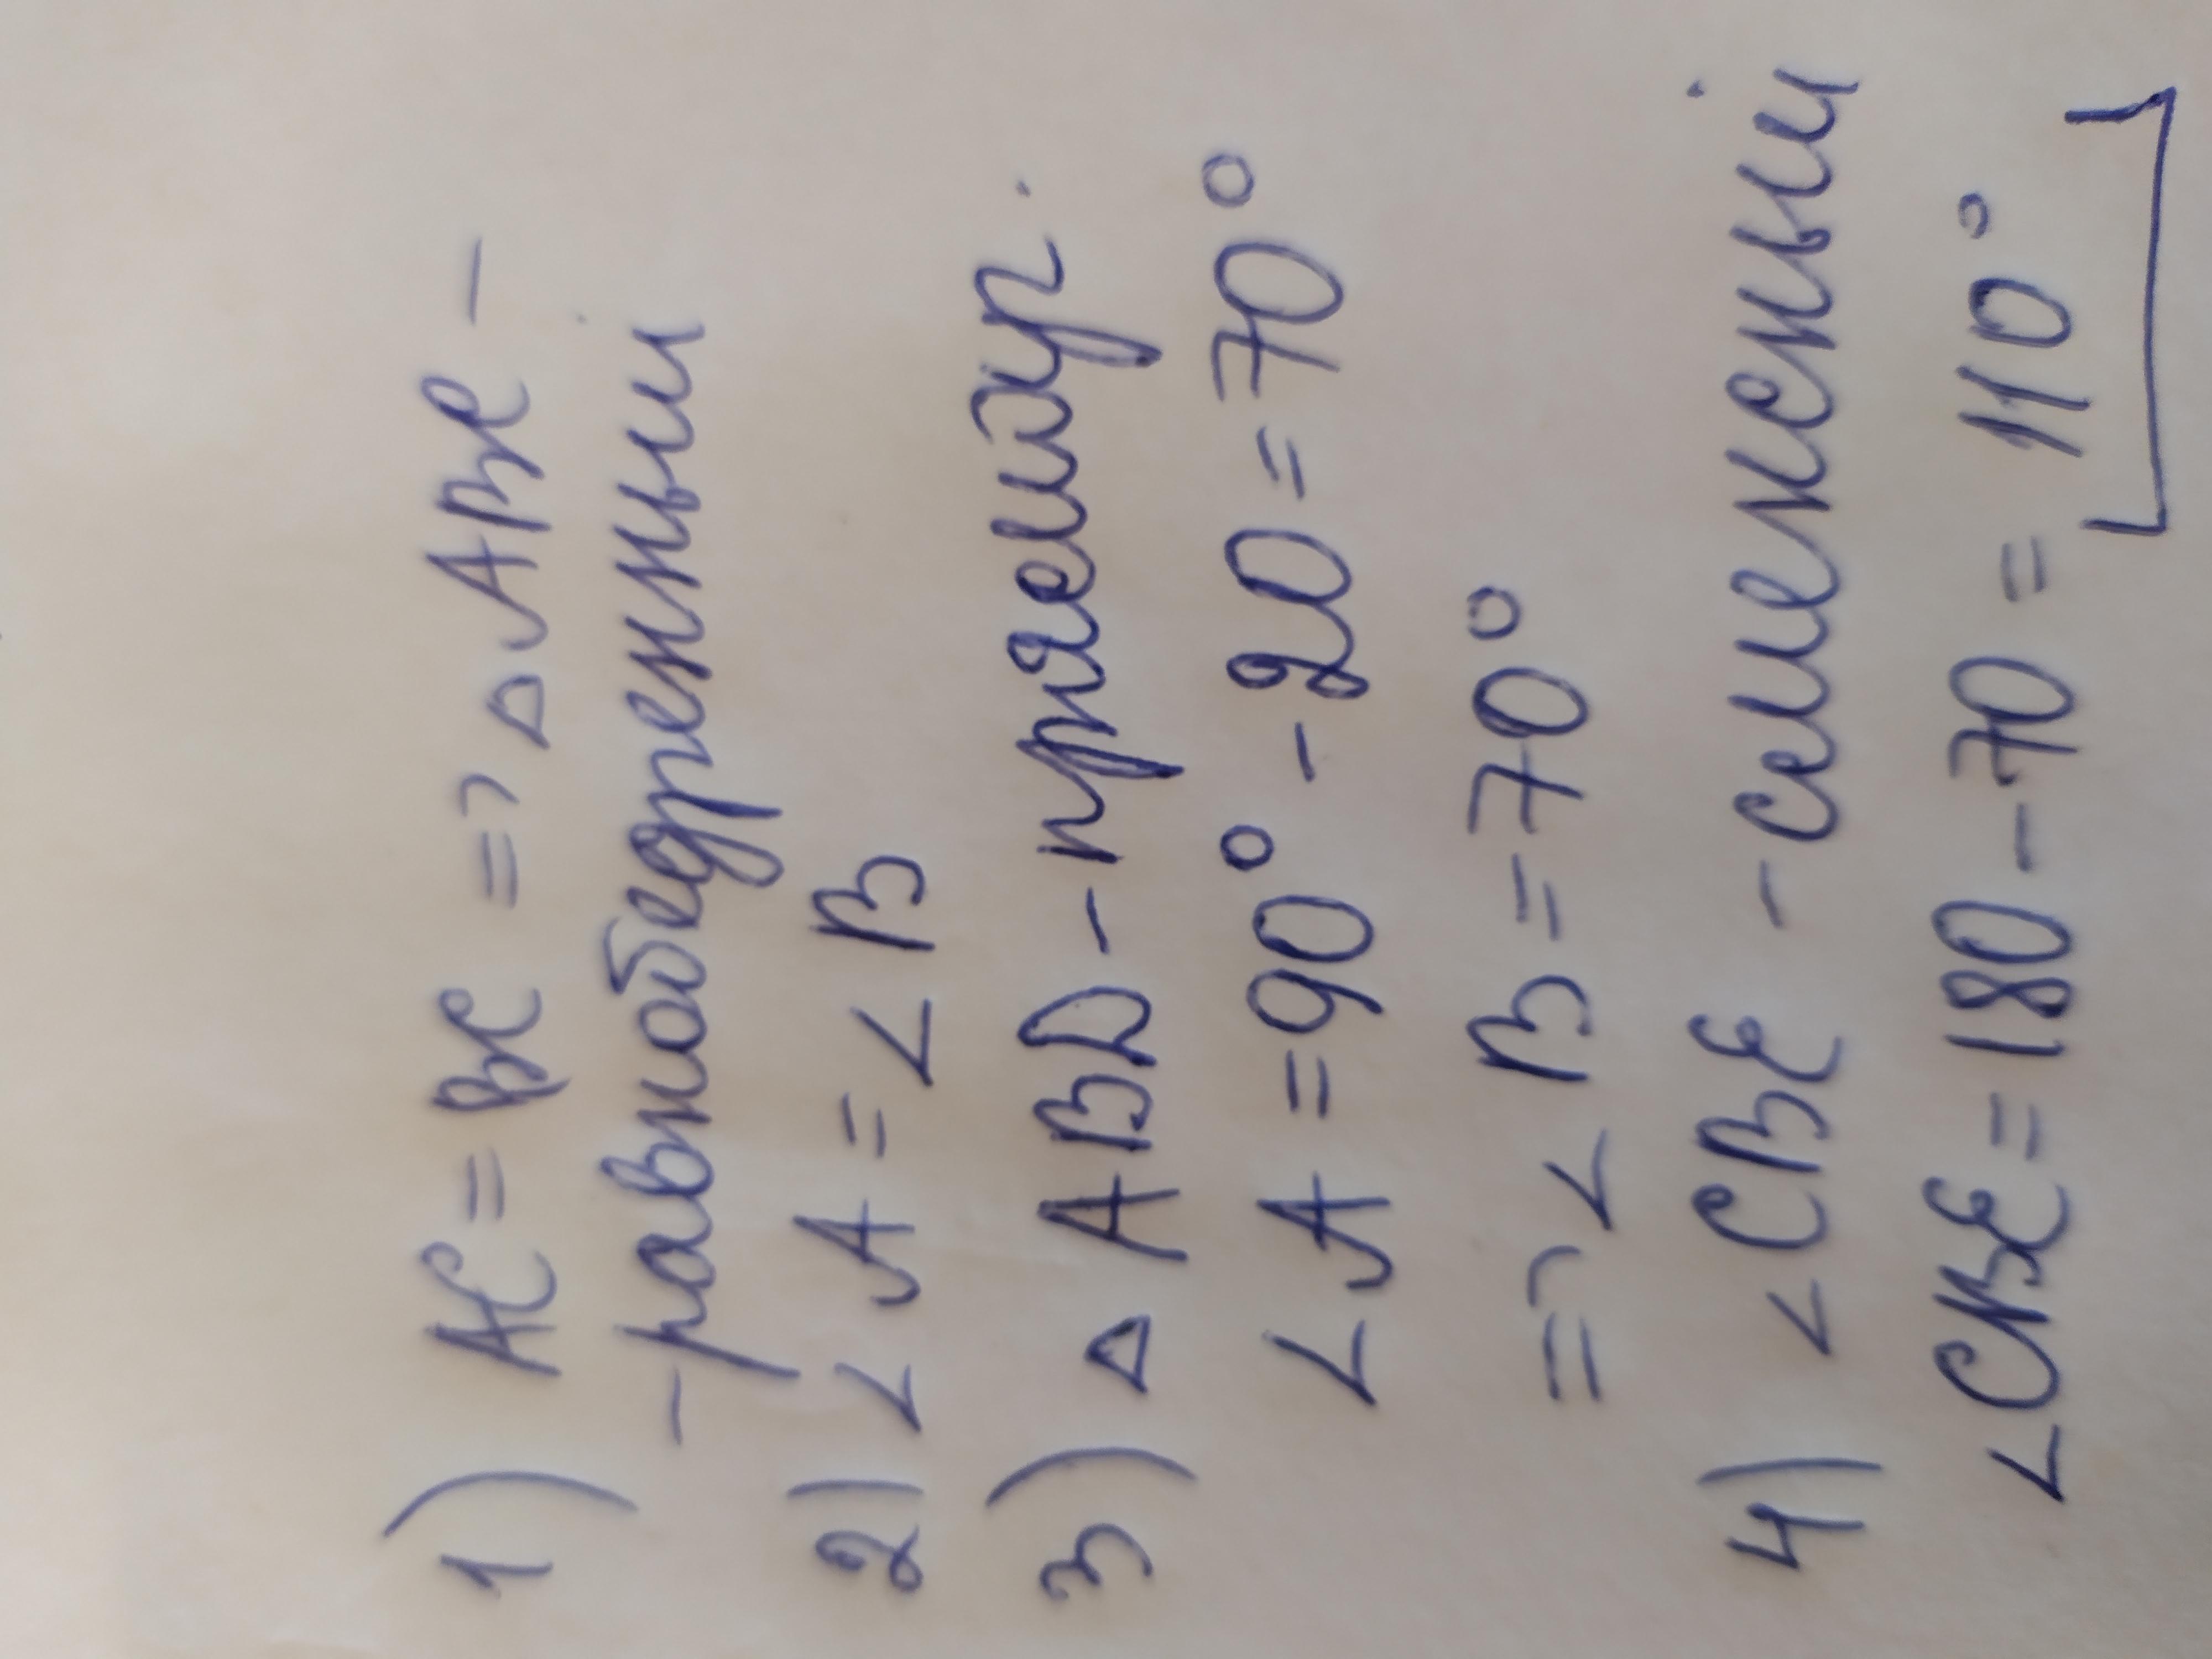 1) AC = BC => △ ABC -
- равнобедренный
2) ∠ A = ∠ B
3) △ ABD - прямоуг.
∠ A = 90° - 20 = 70°
=> ∠ B = 70°
4) ∠ CBE - смежный
∠ CBE = 180 - 70 = 110°